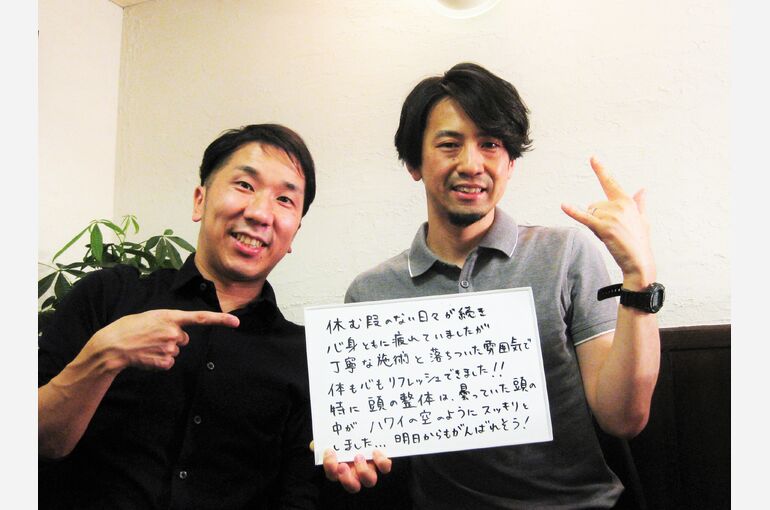 休む暇のない日々が続き
心身ともに疲れていましたが
丁寧な施術と落ちついた雰囲気で
体も心もリフレッシュできました!!
特に頭の整体は、曇っていた頭の
中がハワイの空のようにスッキリと
しました... 明日からもがんばれそう!